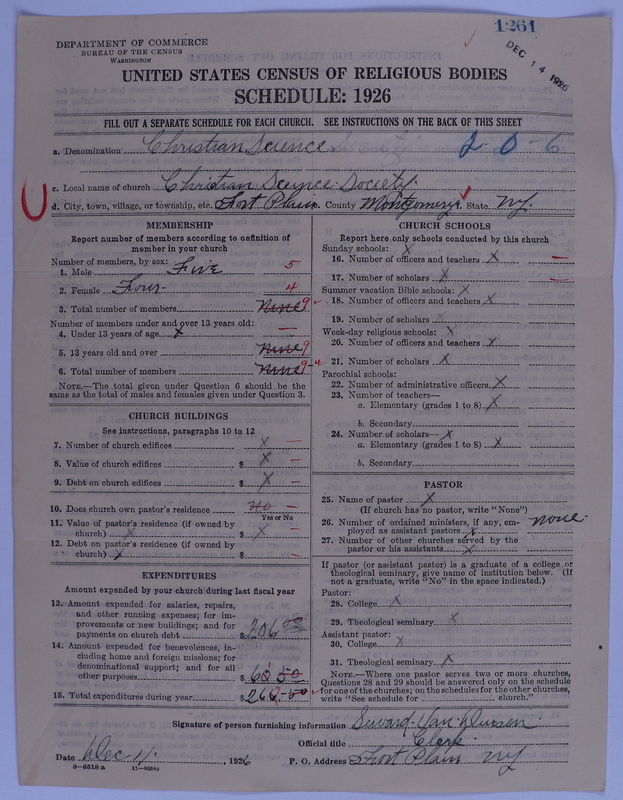 1261
DEC 14 1926
DEPARTMENT OF COMMERCE
BUREAU OF THE CENSUS
WASHINGTON
UNITED STATES CENSUS OF RELIGIOUS BODIES
SCHEDULE: 1926
FILL OUT A SEPARATE SCHEDULE FOR EACH CHURCH. SEE INSTRUCTIONS ON THE BACK OF THIS SHEET
a. Denomination Christian Science 2-0-6
c. Local name of church Christian Science Society
d. City, town, village, or township, etc. Fort Plain County Montgomery State N.Y.
MEMBERSHIP
Report number of members according to definition of
member in your church
Number of members, by sex:
1. Male Five 5
2. Female Four 4
3. Total number of members Nine 9
Number of members under and over 13 years old:
4. Under 13 years of age x —
5. 13 years old and over Nine 9
6. Total number of members Nine 9
NOTE.—The total given under Question 6 should be the
same as the total of males and females given under Question 3.
CHURCH BUILDINGS
See instructions, paragraphs 10 to 12
7. Number of church edifices X —
8. Value of church edifices $ X —
9. Debt on church edifices $ X —
10. Does church own pastor's residence No —
Yes or No
11. Value of pastor's residence (if owned by
church) X $ X —
12. Debt on pastor's residence (if owned by
church) X $ —
EXPENDITURES
Amount expended by your church during last fiscal year
13. Amount expended for salaries, repairs,
and other running expenses; for im-
provements or new buildings; and for
payments on church debt $ 206 00
14. Amount expended for benevolences, in-
cluding home and foreign missions; for
denominational support; and for all
other purposes $ 62 50
15. Total expenditures during year $ 262-50
CHURCH SCHOOLS
Report here only schools conducted by this church
Sunday schools: X
16. Number of officers and teachers X —
17. Number of scholars X —
Summer vacation Bible schools: X
18. Number of officers and teachers X
19. Number of scholars X
Week-day religious schools: X
20. Number of officers and teachers X
21. Number of scholars X
Parochial schools:
22. Number of administrative officers X
23. Number of teachers—
a. Elementary (grades 1 to 8) X
b. Secondary
24. Number of scholars— X
a. Elementary (grades 1 to 8) X
b. Secondary
PASTOR
25. Name of pastor X
(If church has no pastor, write "None")
26. Number of ordained ministers, if any, em-
ployed as assistant pastors X none
27. Number of other churches served by the
pastor or his assistants X
If pastor (or assistant pastor) is a graduate of a college or
theological seminary, give name of institution below. (If
not a graduate, write "No" in the space indicated.)
Pastor:
28. College X
29. Theological seminary X
Assistant pastor:
30. College X
31. Theological seminary X
NOTE.—Where one pastor serves two or more churches,
Questions 28 and 29 should be answered only on the schedule
for one of the churches; on the schedules for the other churches,
write "See schedule for church."
Signature of person furnishing information Seward Van Deusen
Official title Clerk
Date Dec 11, 1926 P. O. Address Fort Plain N.Y.
8—5518 a